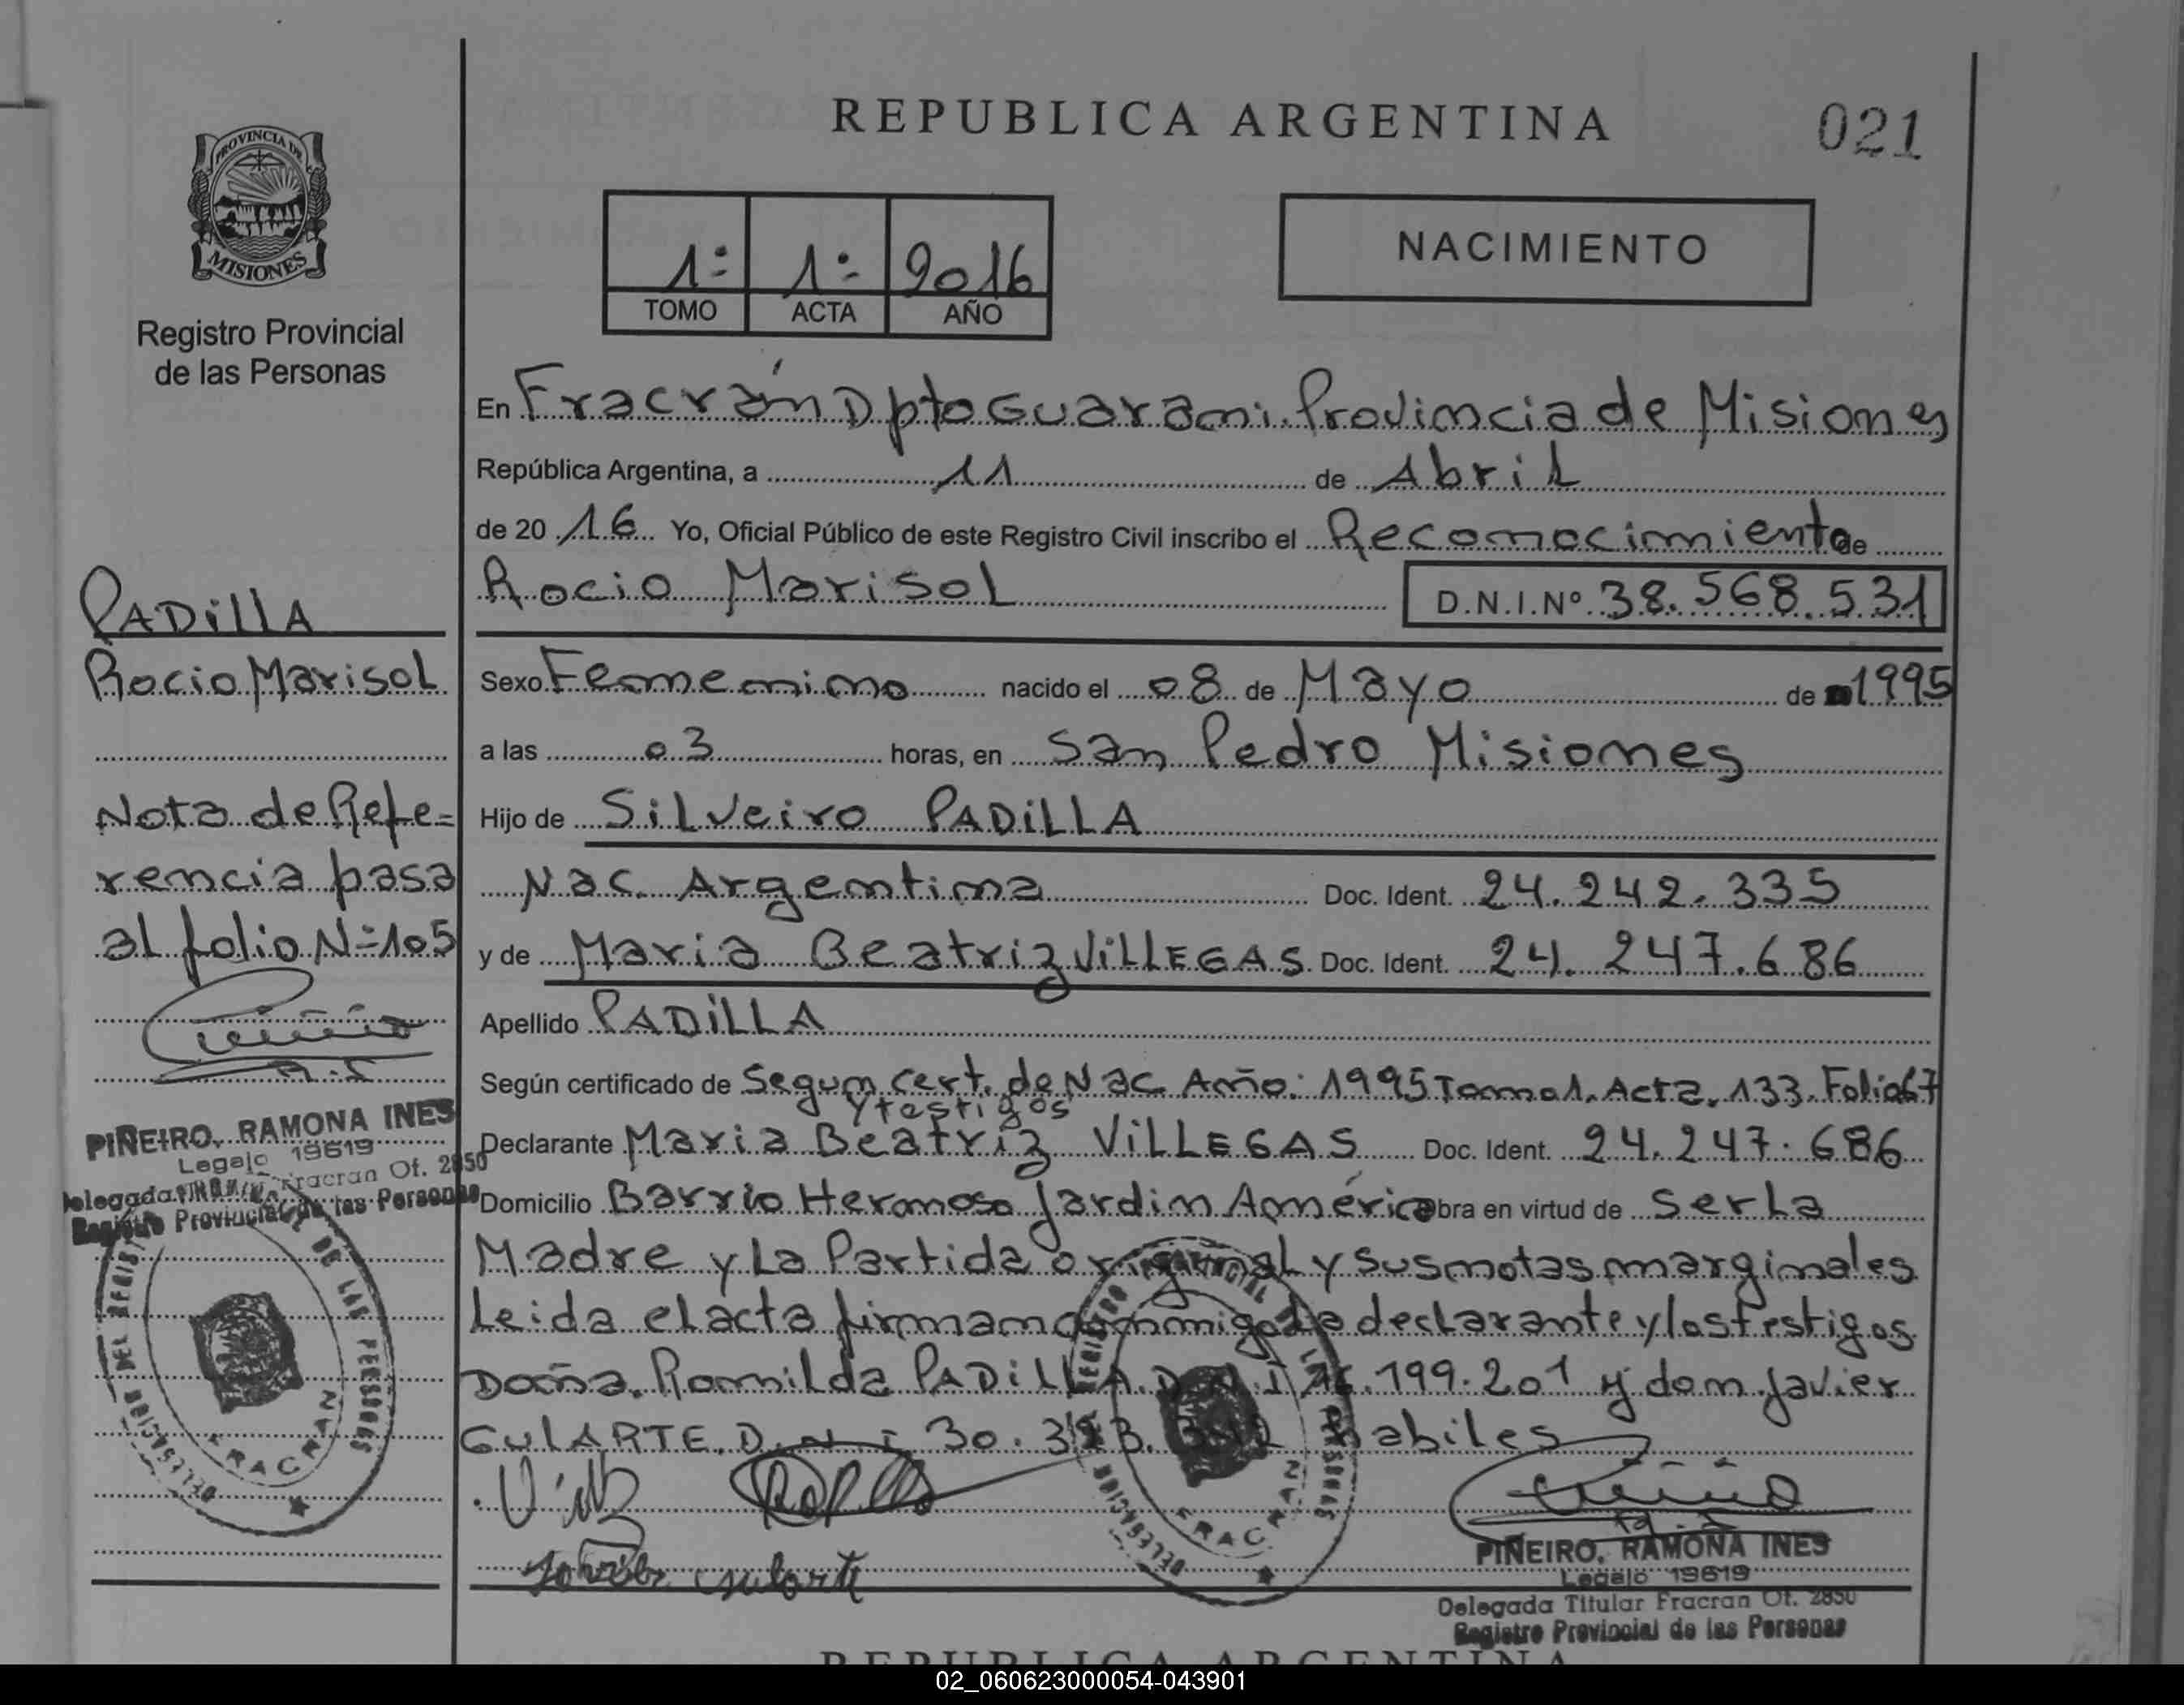 REPUBLICA ARGENTINA
021
PROVINCIA DE
MISIONES
Registro Provincial
de las Personas
1º 1º 2016
TOMO ACTA AÑO
NACIMIENTO
En Fracrán Dpto Guarani Provincia de Misiones
República Argentina, a 11 de Abril
de 20 16 Yo, Oficial Público de este Registro Civil inscribo el Reconocimiento de
Rocio Marisol D.N.I.Nº 38.568.531
Sexo Femenino nacido el 08 de Mayo de 1995
a las 03 horas, en San Pedro Misiones
Hijo de Silveiro PADILLA
Nac. Argentina Doc. Ident. 24.242.335
y de Maria Beatriz VILLEGAS Doc. Ident. 24.247.686
Apellido PADILLA
Según certificado de Segun Cert. de Nac Año: 1995 Tomo 1. Acta. 133. Folio 67
y testigos
Declarante Maria Beatriz VILLEGAS Doc. Ident. 24.247.686
Domicilio Barrio Hermoso Jardin América obra en virtud de Ser La
Madre y La Partida original y sus notas marginales
Leida el acta firman conmigo La declarante y los testigos
Doña. Romilda PADILLA. D.N.I .199.201 y don Javier
GULARTE. D.N.I 30. habiles
PIÑEIRO, RAMONA INES
Legajo 19619
Delegada Titular Fracran Of. 2850
Registro Provincial de las Personas
PADILLA
Rocio Marisol
Nota de Refe=
rencia pasa
al folio Nº 105
PIÑEIRO, RAMONA INES
Legajo 19619
Delegada Titular Fracran Of. 2850
Registro Provincial de las Personas
FRACRAN
FRACRAN
REPUBLICA ARGENTINA
02_060623000054-043901